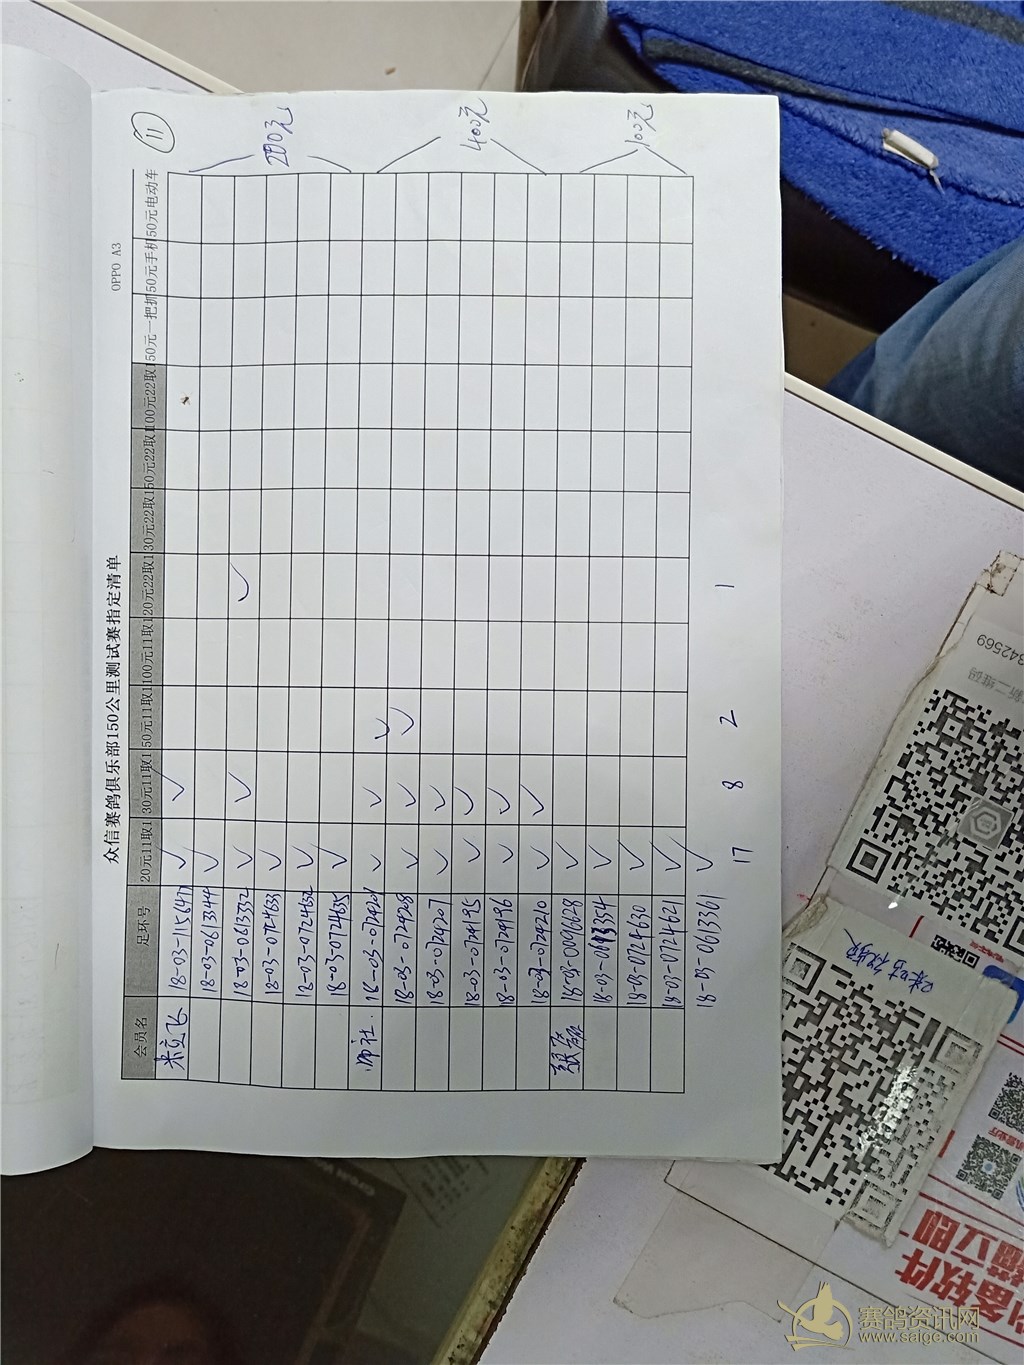 ⑪
众信赛鸽俱乐部150公里测试赛指定清单
OPPO A3
会员名 足环号 20元11取1 30元11取1 50元11取1 100元11取1 20元22取1 30元22取1 50元22取1 100元22取1 50元一把抓 50元手机 50元电动车
米立飞 18-03-1156471 ✓ ✓
18-03-0613344 ✓
18-03-0613352 ✓ ✓ ✓
18-03-0724633 ✓
18-03-0724632 ✓
18-03-0724635 ✓
200元
师社. 18-03-0724201 ✓ ✓ ✓
18-03-0724208 ✓ ✓ ✓
18-03-0724207 ✓ ✓
18-03-0724195 ✓ ✓
18-03-0724196 ✓ ✓
18-03-0724210 ✓ ✓
400元
18-03-0096628 ✓
18-03-0613354 ✓
18-03-0724630 ✓
18-03-0724621 ✓
18-03-0613361 ✓
100元
17 8 2 1
342569
新二维码
备软件
立即
赛鸽资讯网
www.saige.com